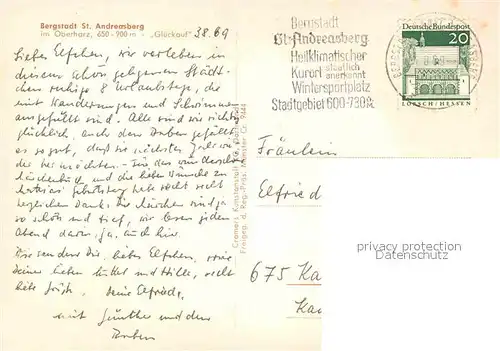 Bergstadt St. Andreasberg
im Oberharz, 650-900 m - „Glückauf" 3.8.69
Liebe Elfchen, wir verleben in
diesem schön gelegenen Städt-
chen ruhige 8 Urlaubstage, die
mit Wanderungen und Schwimmen
ausgefüllt sind. Alle sind wir sehr
glücklich, auch den Buben gefällt
es so gut, daß sie nächstes Jahr
wieder her möchten. - Für das wunderschöne
Märchenbuch und die lieben Wünsche zu
Geburtstag habt recht recht
herzlichen Dank. Die Märchen sind ja
so schön und tief, wir lesen jeden
Abend darin, ja, auch hier.
Wir senden Dir, liebe Elfchen,
Deiner lieben Mutter und Hille, recht
liebe Grüße, Deine Elfriede,
mit Günther und den
Buben
Cramers Kunstanstalt KG, Dortmund
Freigeg. d. Reg.-Präs. Münster Cr. 9444
Bergstadt
St.Andreasberg
Heilklimatischer
Kurort staatlich anerkannt
Wintersportplatz
Stadtgebiet 600-730m
Deutsche Bundespost
20
LORSCH/HESSEN
Fräulein
Elfried
675 Ka
Ka
picclick.de
protected copyright